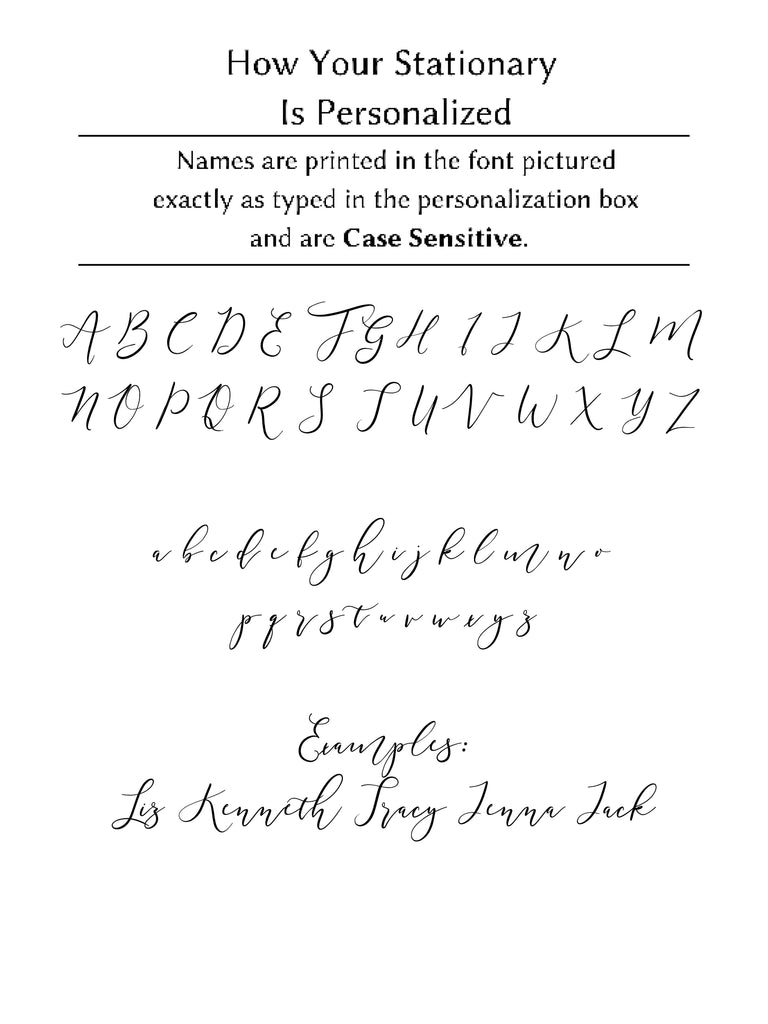 How Your Stationary
Is Personalized
Names are printed in the font pictured
exactly as typed in the personalization box
and are Case Sensitive.
A B C D E F G H I J K L M
N O P Q R S T U V W X Y Z
a b c d e f g h i j k l m n o
p q r s t u v w x y z
Examples:
Liz Kenneth Tracy Jenna Jack